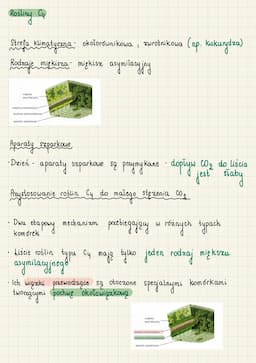 Rośliny C4
Strefa klimatyczna - okołorównikowa, zwrotnikowa (np. kukurydza)
Rodzaje miękiszu - miękisz asymilacyjny
Aparaty szparkowe
· Dzień - aparaty szparkowe są przymykane - dopływ CO2 do liścia
jest słaby
Przystosowanie roślin C4 do małego stężenia CO2
· Dwu etapowy mechanizm przebiegający w różnych typach
komórek
· Liście roślin typu C4 mają tylko jeden rodzaj miękiszu
asymilacyjnego
· Ich wiązki przewodzące są otoczone specjalnymi komórkami
tworzącymi pochwę okołowiązkową